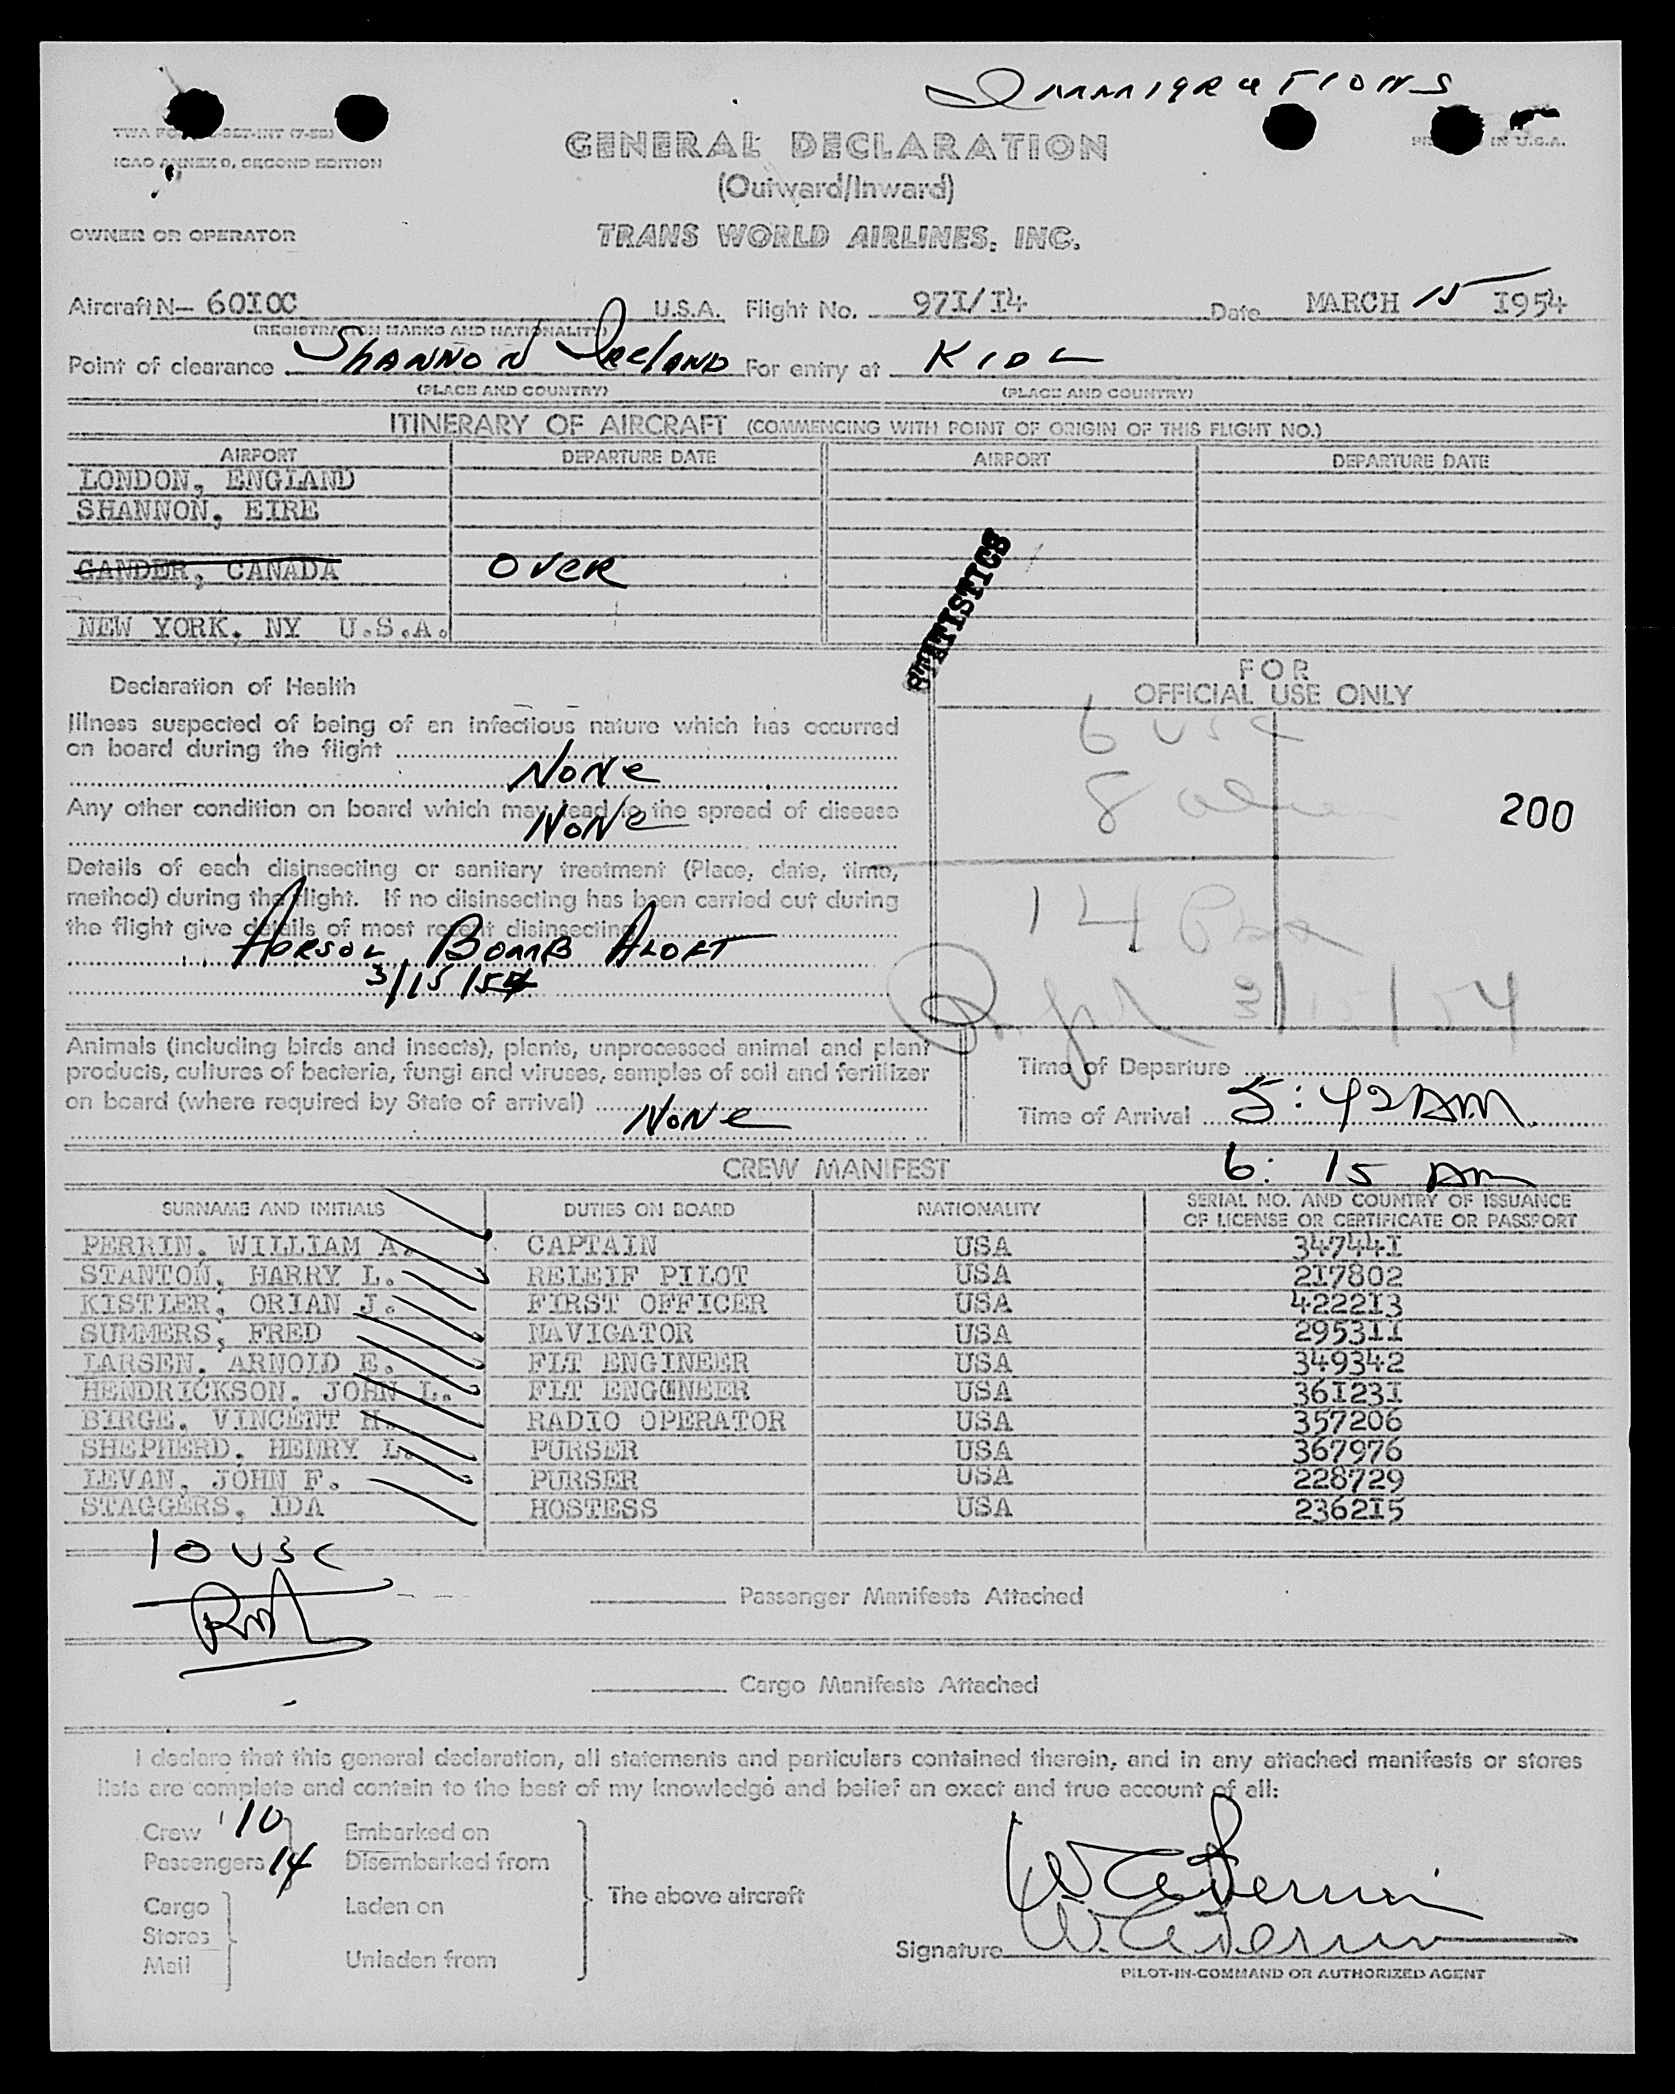 Immigrations
GENERAL DECLARATION
ICAO ANNEX 9, SECOND EDITION
(Outward/Inward)
OWNER OR OPERATOR TRANS WORLD AIRLINES, INC.
Aircraft N— 6010C U.S.A. Flight No. 971/14 Date MARCH 15 1954
(REGISTRATION MARKS AND NATIONALITY)
Point of clearance Shannon Ireland For entry at KIDL
(PLACE AND COUNTRY) (PLACE AND COUNTRY)
ITINERARY OF AIRCRAFT (COMMENCING WITH POINT OF ORIGIN OF THIS FLIGHT NO.)
AIRPORT DEPARTURE DATE AIRPORT DEPARTURE DATE
LONDON, ENGLAND
SHANNON, EIRE
GANDER, CANADA OVER
NEW YORK, NY U.S.A.
STATISTICS
Declaration of Health
Illness suspected of being of an infectious nature which has occurred
on board during the flight
None
Any other condition on board which may lead to the spread of disease
None
Details of each disinsecting or sanitary treatment (Place, date, time,
method) during the flight. If no disinsecting has been carried out during
the flight give details of most recent disinsecting
Aorsol Bomb Aloft
3/15/54
FOR
OFFICIAL USE ONLY
6 USC
8
200
14
3/15/54
Animals (including birds and insects), plants, unprocessed animal and plant
products, cultures of bacteria, fungi and viruses, samples of soil and fertilizer
on board (where required by State of arrival)
None
Time of Departure
Time of Arrival 5:42 AM
6:15 AM
CREW MANIFEST
SURNAME AND INITIALS DUTIES ON BOARD NATIONALITY SERIAL NO. AND COUNTRY OF ISSUANCE OF LICENSE OR CERTIFICATE OR PASSPORT
PERRIN, WILLIAM A. CAPTAIN USA 347441
STANTON, HARRY L. RELEIF PILOT USA 217802
KISTLER, ORIAN J. FIRST OFFICER USA 422213
SUMMERS, FRED NAVIGATOR USA 295311
LARSEN, ARNOLD E. FLT ENGINEER USA 349342
HENDRICKSON, JOHN L. FLT ENGINEER USA 361231
BIRGE, VINCENT H. RADIO OPERATOR USA 357206
SHEPHERD, HENRY L. PURSER USA 367976
LEVAN, JOHN F. PURSER USA 228729
STAGGERS, IDA HOSTESS USA 236215
10 USC
Passenger Manifests Attached
Cargo Manifests Attached
I declare that this general declaration, all statements and particulars contained therein, and in any attached manifests or stores
lists are complete and contain to the best of my knowledge and belief an exact and true account of all:
Crew 10 Embarked on
Passengers 14 Disembarked from
Cargo Laden on
Stores
Mail Unladen from
The above aircraft
W A Perrin
Signature W. A. Perrin
PILOT-IN-COMMAND OR AUTHORIZED AGENT